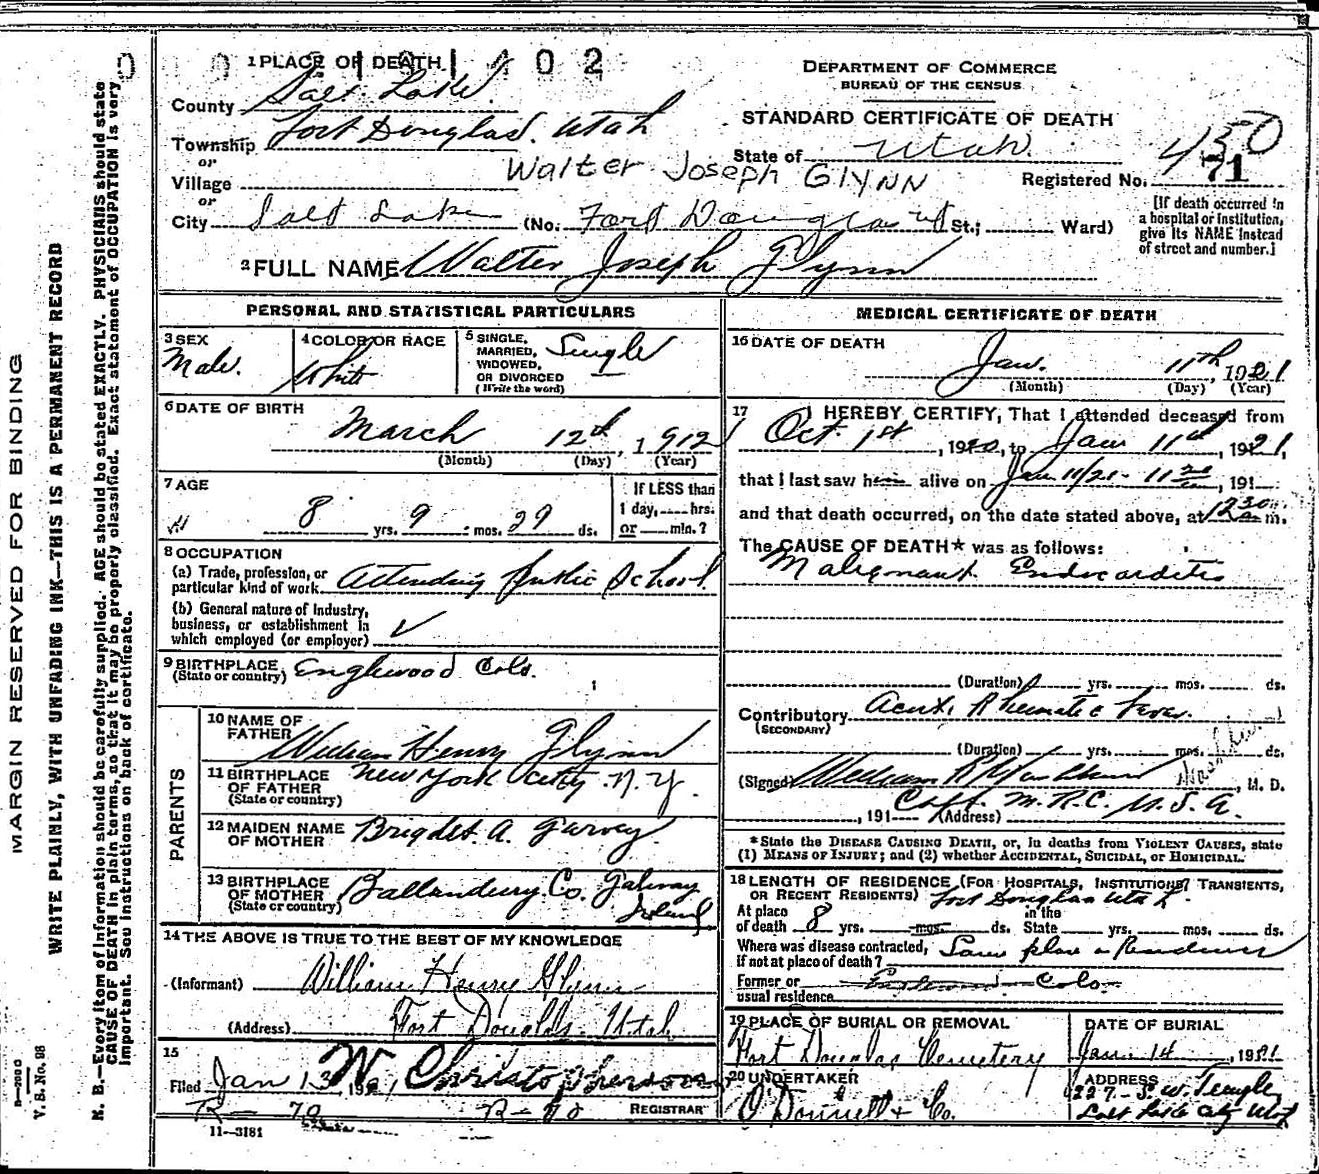 1 PLACE OF DEATH
County Salt Lake
Township Fort Douglas, Utah
or
Village
or
City Salt Lake (No. Fort Douglas St.; Ward)
Walter Joseph GLYNN
DEPARTMENT OF COMMERCE
BUREAU OF THE CENSUS
STANDARD CERTIFICATE OF DEATH
State of Utah
450
Registered No. 71
[If death occurred in
a hospital or institution,
give its NAME instead
of street and number.]
2 FULL NAME Walter Joseph Glynn
PERSONAL AND STATISTICAL PARTICULARS
3 SEX
Male.
4 COLOR OR RACE
White
5 SINGLE,
MARRIED,
WIDOWED,
OR DIVORCED
(Write the word)
Single
6 DATE OF BIRTH
March 12th, 1912
(Month) (Day) (Year)
7 AGE
8 yrs. 9 mos. 29 ds.
If LESS than
1 day, hrs.
or min.?
8 OCCUPATION
(a) Trade, profession, or
particular kind of work Attending public School
(b) General nature of industry,
business, or establishment in
which employed (or employer)
9 BIRTHPLACE
(State or country) Englewood Colo.
PARENTS
10 NAME OF
FATHER
William Henry Glynn
11 BIRTHPLACE
OF FATHER
(State or country)
New York City N.Y.
12 MAIDEN NAME
OF MOTHER
Bridget A. Garvey
13 BIRTHPLACE
OF MOTHER
(State or country)
Co. Galway
Ireland
14 THE ABOVE IS TRUE TO THE BEST OF MY KNOWLEDGE
(Informant) William Henry Glynn
(Address) Fort Douglas Utah
15
Filed Jan 13, 1921, W Christopherson
REGISTRAR
11—3181
MEDICAL CERTIFICATE OF DEATH
16 DATE OF DEATH
Jan. 11th, 1921
(Month) (Day) (Year)
17 I HEREBY CERTIFY, That I attended deceased from
Oct. 1st, 1920, to Jan 11th, 1921,
that I last saw h alive on Jan 11/21 - 11 , 191
and that death occurred, on the date stated above, at 1230 m.
The CAUSE OF DEATH* was as follows:
Malignant Endocarditis
(Duration) yrs. mos. ds.
Contributory Acute Rheumatic Fever
(SECONDARY)
(Duration) yrs. mos. ds.
(Signed) William R Washburn, M. D.
Washburn
, 191 (Address) Capt. M.R.C. U.S.A.
*State the DISEASE CAUSING DEATH, or, in deaths from VIOLENT CAUSES, state
(1) MEANS OF INJURY; and (2) whether ACCIDENTAL, SUICIDAL, or HOMICIDAL.
18 LENGTH OF RESIDENCE (FOR HOSPITALS, INSTITUTIONS, TRANSIENTS,
OR RECENT RESIDENTS) Fort Douglas Utah.
At place
of death 8 yrs. mos. ds.
In the
State yrs. mos. ds.
Where was disease contracted,
if not at place of death? Same place Residence
Former or
usual residence Englewood Colo.
19 PLACE OF BURIAL OR REMOVAL
Fort Douglas Cemetery
DATE OF BURIAL
Jan. 14, 1921
20 UNDERTAKER
O'Donnell & Co.
ADDRESS
227 - S. W. Temple
Salt Lake City Utah
MARGIN RESERVED FOR BINDING
WRITE PLAINLY, WITH UNFADING INK—THIS IS A PERMANENT RECORD
N. B.—Every item of information should be carefully supplied. AGE should be stated EXACTLY. PHYSICIANS should state
CAUSE OF DEATH in plain terms, so that it may be properly classified. Exact statement of OCCUPATION is very
important. See instructions on back of certificate.
V. S. No. 98